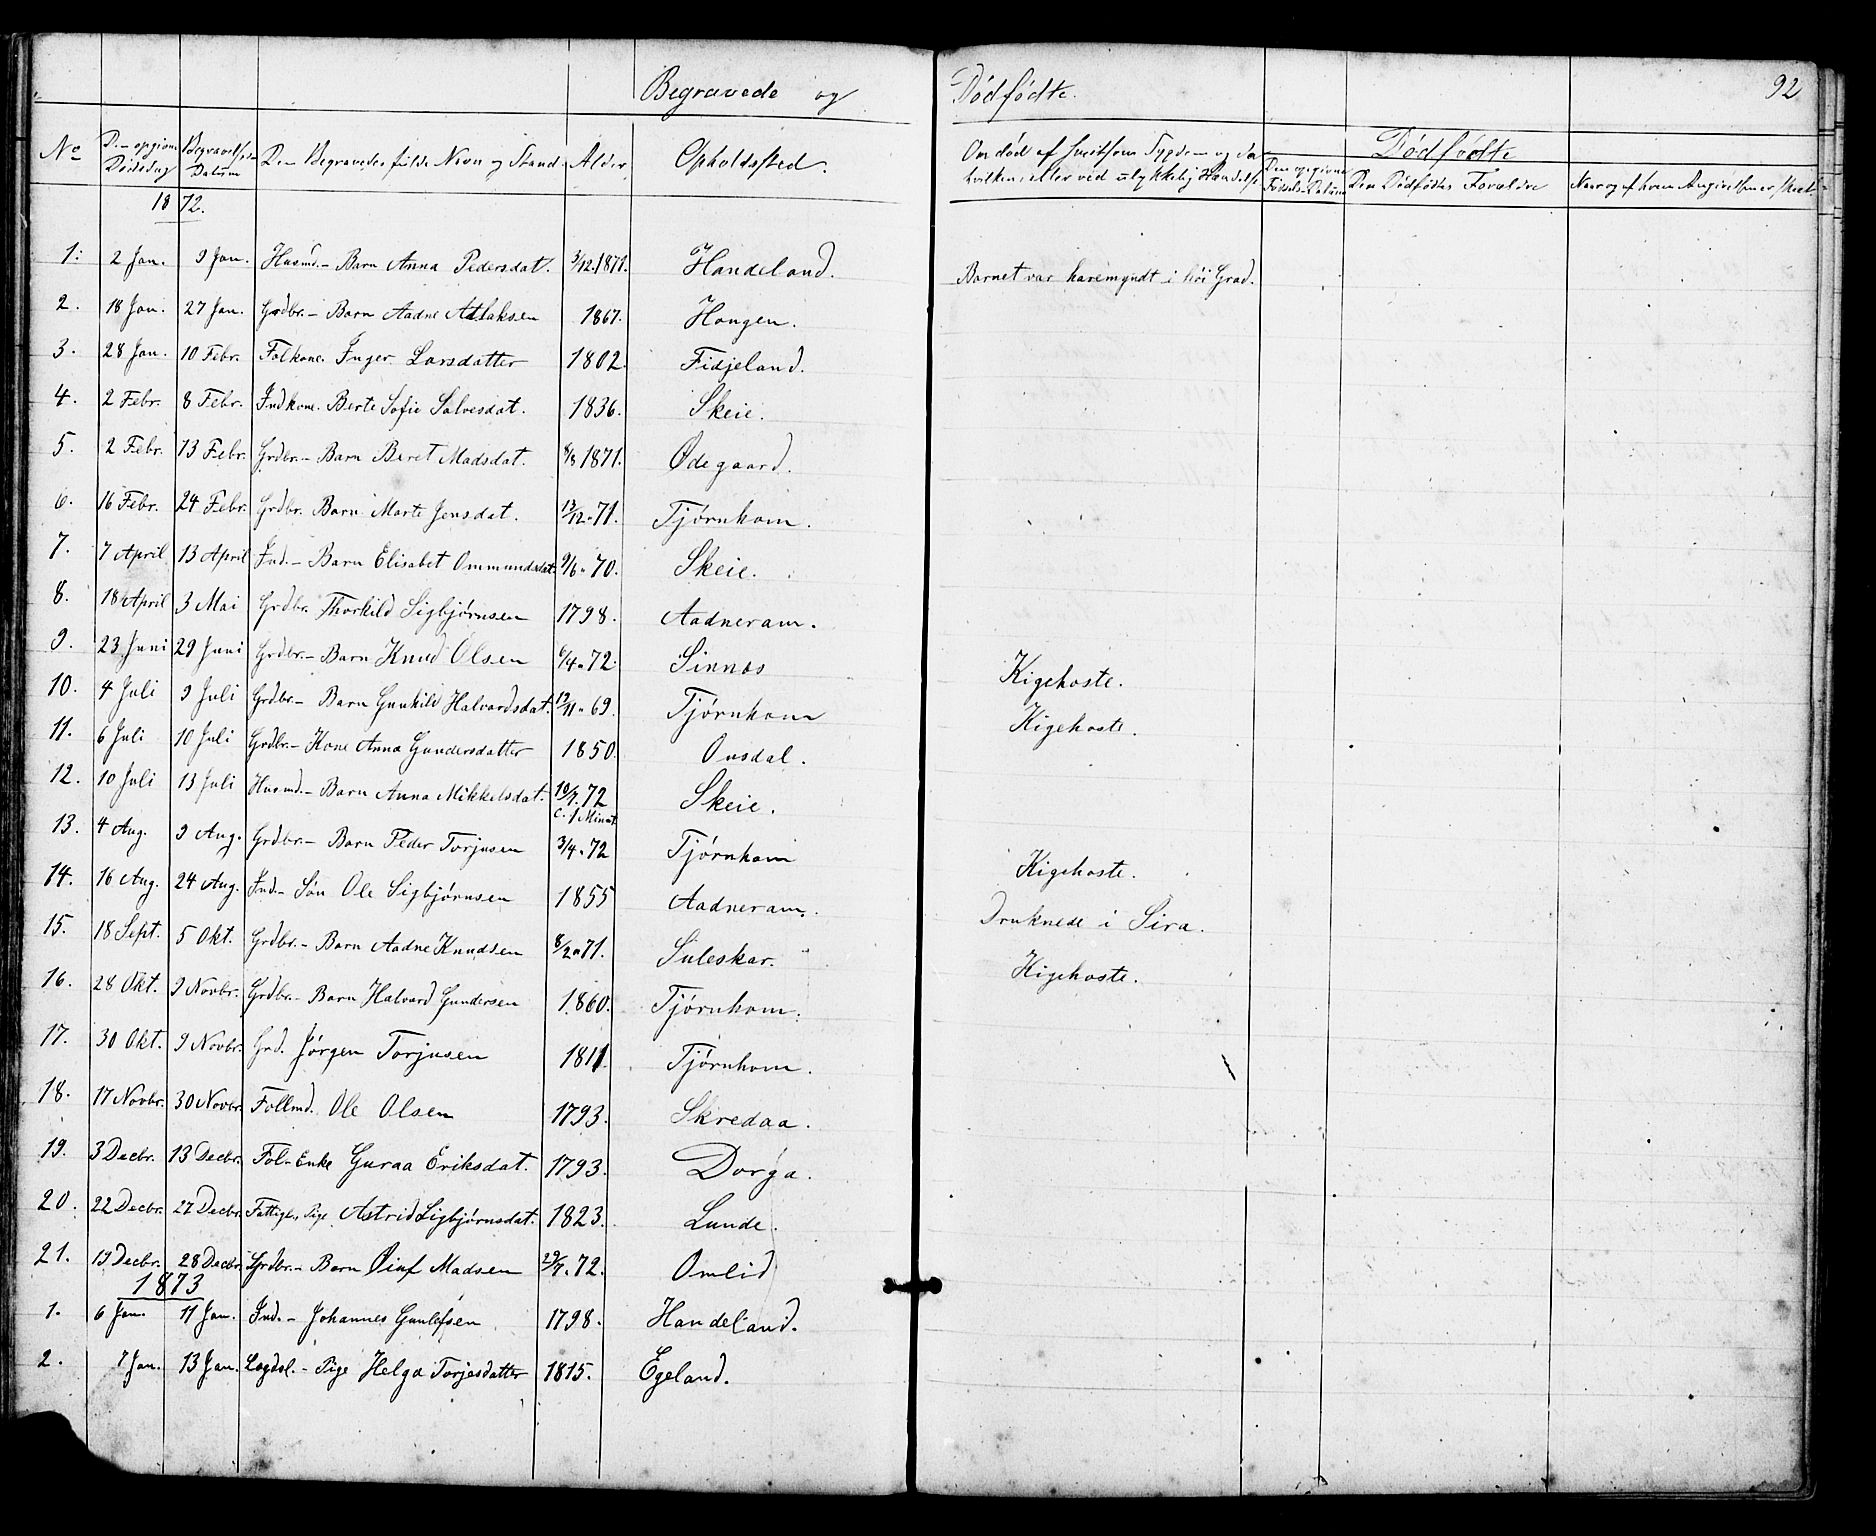 Begravede og Dödfödte. 92
No Den opgivne Dödsdag Begravelses Datum Den Begravedes fulde Navn og Stand. Alder. Opholdssted. Om död af smitsom Sygdom og da hvilken, eller ved ulykkelig Hændelse Den opgivne Födsels-Datum Dödfödte Den Dödfödtes Forældre Naar og af hvem Angivelsen er skeet
1872.
1. 2 Jan. 9 Jan. Husmd.- Barn Anna Pedersdat. 3/12.1871. Handeland. Barnet var haremyndt i höi Grad.
2. 18 Jan. 27 Jan. Grdbr.- Barn Aadne Atlaksen 1867. Hongen.
3. 28 Jan. 10 Febr. Folkone. Inger Larsdatter 1802. Fidjeland.
4. 2 Febr. 8 Febr. Indkone. Berte Sofie Salvesdat. 1836. Skeie.
5. 2 Febr. 13 Febr. Grdbr.- Barn Beret Madsdat. 8/8 1871. Ödegaard.
6. 16 Febr. 24 Febr. Grdbr. Barn Marte Jensdat. 13/12 " 71. Tjørnhom.
7. 7 April 13 April Ind.- Barn Elisabet Ommundsdat. 9/6 " 70. Skeie.
8. 18 April 3 Mai Grdbr. Thorkild Sigbjørnsen 1798. Aadneram.
9. 23 Juni 29 Juni Grdbr.- Barn Knud Olsen 6/4 " 72. Sinnes Kigehoste.
10. 4 Juli 9 Juli Grdbr.- Barn Gunhild Halvardsdat. 13/11 " 69. Tjørnhom Kigehoste.
11. 6 Juli 10 Juli Grdbr.- Kone Anna Gundersdatter 1850. Ousdal.
12. 10 Juli 13 Juli Husmd.- Barn Anna Mikkelsdat. 10/7. 72 c. 1 Minut Skeie.
13. 4 Aug. 9 Aug. Grdbr.- Barn Peder Torjusen 3/4 " 72 Tjørnhom Kigehoste.
14. 16 Aug. 24 Aug. Ind.- Søn Ole Sigbjørnsen 1855 Aadneram. Druknede i Sira.
15. 18 Sept. 5 Okt. Grdbr.- Barn Aadne Knudsen 8/2 " 71. Suleskar. Kigehoste.
16. 28 Okt. 9 Novbr. Grdbr.- Barn Halvard Gundersen 1860. Tjørnhom.
17. 30 Okt. 9 Novbr. Grd. Jørgen Torjusen 1811. Tjørnhom.
18. 17 Novbr. 30 Novbr. Follmd. Ole Olsen 1793. Skredaa.
19. 3 Decbr. 13 Decbr. Fol-Enke Guraa Eriksdat. 1793. Dorga.
20. 22 Decbr. 27 Decbr. Fattigl. Pige. Astrid Sigbjørnsdat. 1823. Lunde.
21. 19 Decbr. 28 Decbr. Grdbr.- Barn Øiuf Madsen 29/7 " 72. Omlid
1873
1. 6 Jan. 11 Jan. Ind.- Johannes Gunlefsen 1798. Handeland.
2. 7 Jan. 13 Jan. Lægdsl.- Pige Helga Torjesdatter 1815. Egeland.